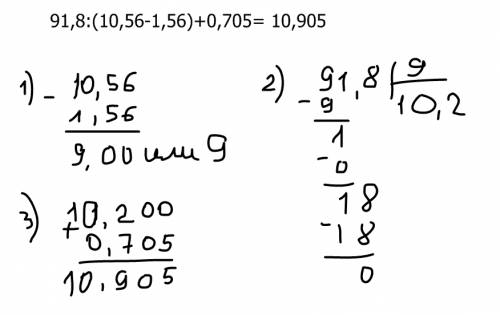 91,8:(10,56-1,56)+0,705= 10,905
1) - 10,56
1,56
9,00 или 9
2) 91,8 9
- 9 10,2
1
- 0
18
- 18
0
3) + 10,200
0,705
10,905